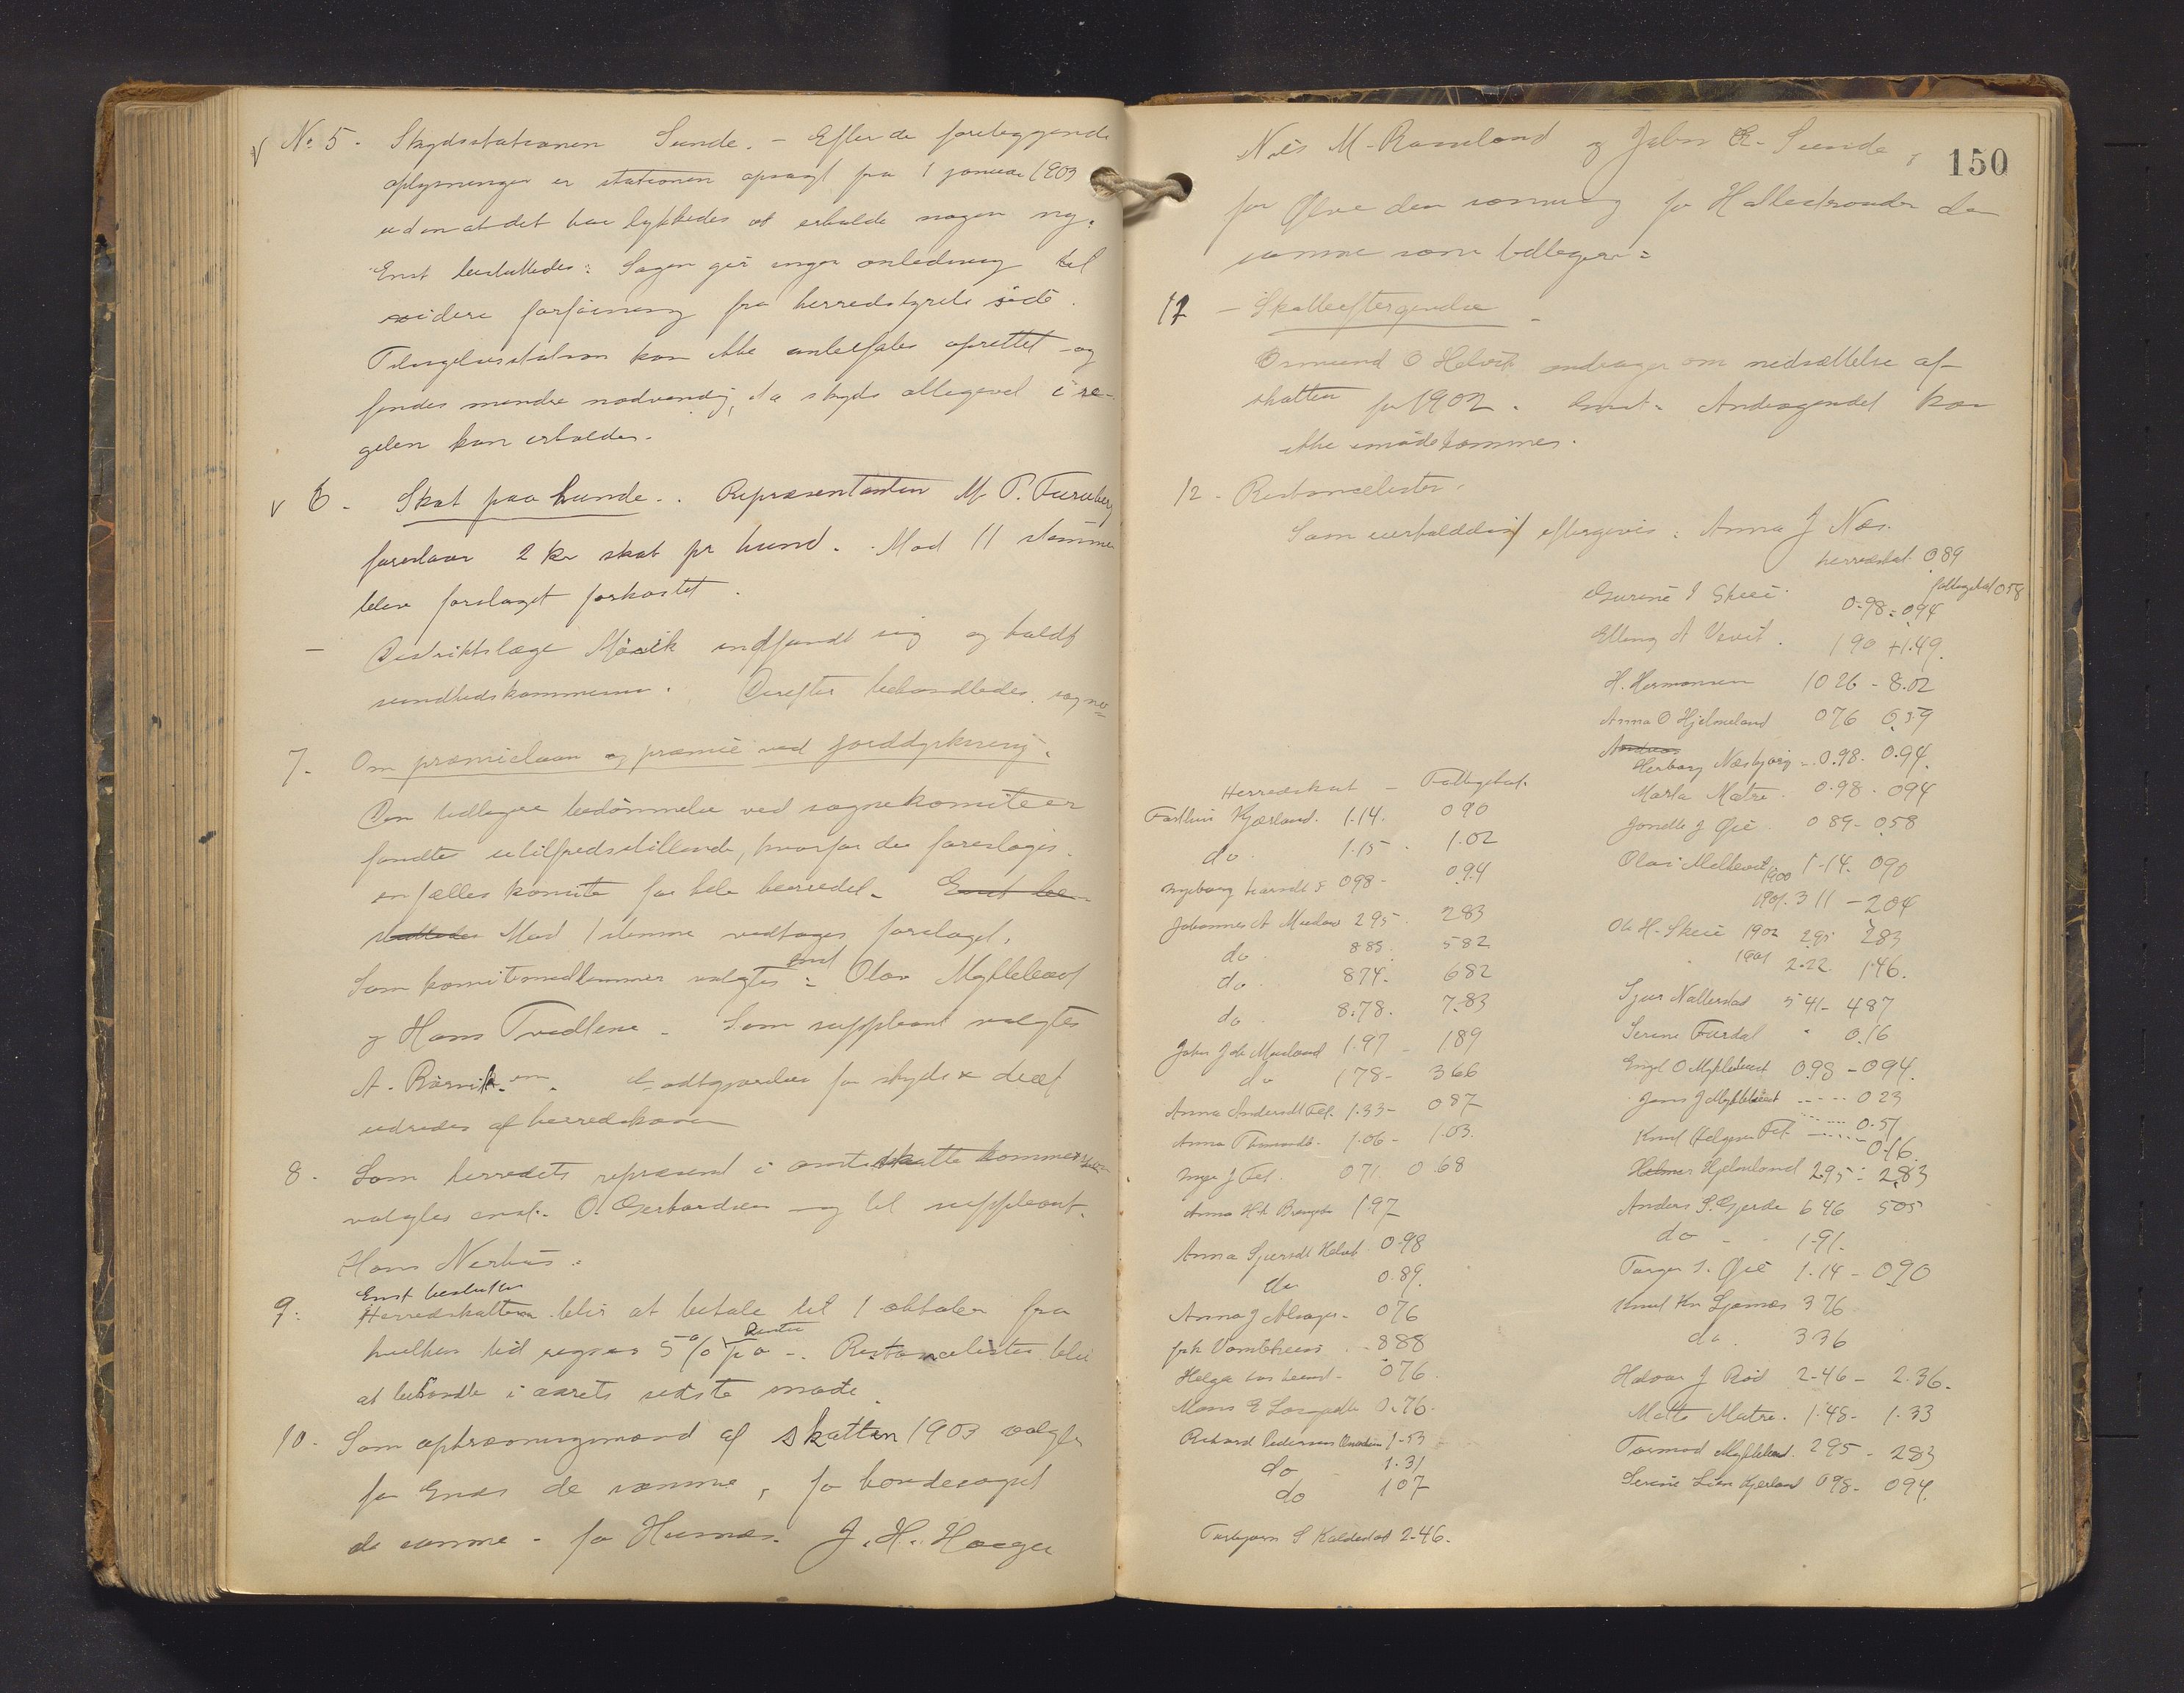 V No 5. Skydsstationen Sunde. - Efter de foreliggende
oplysninger er stationen opsagt fra 1 januar 1903
uden at det har lykkedes at erholde nogen ny.
Enst besluttedes: Sagen gir ingen anledning til
videre forføining fra herredstyrets side.
Tilsigelsesstation kan ikke anbefales oprettet - og
findes mindre nødvendig, da skyds allegevel i re-
gelen kan erholdes.
V 6. Skat paa hunde. Repræsentanten M. P. Furuberg
foreslaar 2 kr skat pr hund. Mod 11 stemmer
blev forslaget forkastet.
- Distriktslæge indfandt sig og holdt
sundhedskommission. Derefter behandledes sagne
7. Om præmielaan og præmie ved jorddyrkning.
Den tidligere bedømmelse ved sognekomiteer
fandtes utilfredsstillende, hvorfor der foreslages
en fælles komite for hele herredet. Enst be-
sluttedes Mod 1 stemme vedtages forslaget.
Som komitemedlemmer valgtes enst: Olav Myklebust
og Hans Tvedtene - Som suppleant valgtes
A. Røsvik. Godtgjørelse for skyds & diæt
udredes af herredskassen
8. Som herredets repræsent i amtsskattekommissionen
valgtes enst. O. Gerhardsen og til suppleant.
Hans Nerhus.
Enst besluttes
9. Herredskatten blir at betale til 1 oktober fra
hvilken tid regnes 5% Rente p a -. Restancelister blir
at behandle i aarets sidste møde.
10. Som opkrævningsmænd af skatten 1903 valgtes
for Enes de samme, for bondesognet
de samme - for Husnes. J. H. Hauge
150
Nils M. Ramsland og Johs E. Sunde,
for Ølve den samme og for Hallestranden de
samme som tidligere.
11 - Skatteeftergivelse -
Osmund O Helvik andrager om nedsættelse af
skatten for 1902. Enst. Andragendet kan
ikke imødekommes.
12 - Restancelister.
Som uerholdelig eftergives: Anna J Næs.
herredskat 0 89
fattigskat 0 58
Gurine J Skeie. 0.98 - 0.94
Elling A Vevik. 1 90 + 1.49
H. Hermansen 10 26 - 8.02
Anna O Hjelmeland 0 76 0.59
Andreas
Herborg Næsbjørg - 0.98. 0.94.
Marta Matre. 0.98. 0 94
Jonette J Øie. 0 89 - 0.58
Olai Meltvedt 1900 1.14. 0 90
1901. 3 11 - 2 04
Ole H. Skeie 1902 2.95 2 83
1901 2.22 1.46.
Sjur Nallestad 5 41 - 4 87
Serine Furdal " 0.16
Engl O Myklebust 0.98 - 0 94.
Jens J Myklebust ----- 0 23
Knut Helgesen Fet. ----- 0.51
------ 0.16
Helmer Hjelmeland 2.95 - 2.83
Anders S. Gjerde 6 46 5 05
do - - 1.91.
Torger T. Øie 1.14 - 0.90
Knut Kn Sjonæs 3 76
do. 3 36
Halvor J Rød 2.46 - 2.36.
Matts Matre. 1.48 - 1.33
Tormod Myklebust. 2 95 - 2 83
Serine Lien Kjerland 0 98 - 0 94.
Herredskat - Fattigskat.
Torthus Kjærland. 1.14. 0 90
do. 1.15. 1.02
Ingeborg Larsdt 0 98 - 0.94
Johannes A Musland 2 95. 2 83
do. 8 88. 5 82
do. 8 74. 6 82
do. 8.78. 7.83
John Joh Musland 1.97 - 1 89
do 1 78 - 3 66
Anna Andersdt Fet. 1.33 - 0 87
Anna 1.06 - 1.03.
Inge J Fet. 0 71. 0 68
Anna H.d. 1.97
Anna Sjursdt Helvik 0.98
do 0.89.
Anna J Alsager - 0 76
8 88
Helga 0 76.
Mons E 0.76.
Rikard Pedersen 1.53
do - 1.31
do 1 07
Torbjørn S Kaldestad 2.46.